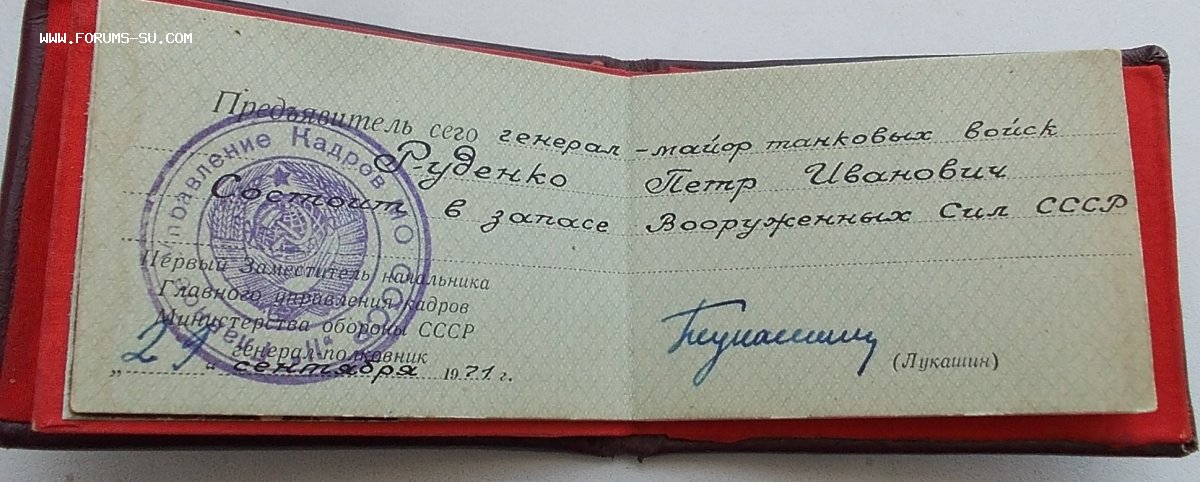 WWW.FORUMS-SU.COM
Предъявитель сего генерал-майор танковых войск
Руденко Петр Иванович
Состоит в запасе Вооруженных Сил СССР
Первый Заместитель начальника
Главного управления кадров
Министерства обороны СССР
генерал-полковник
(Лукашин)
„29“ сентября 1971 г.
Управление Кадров МО СССР